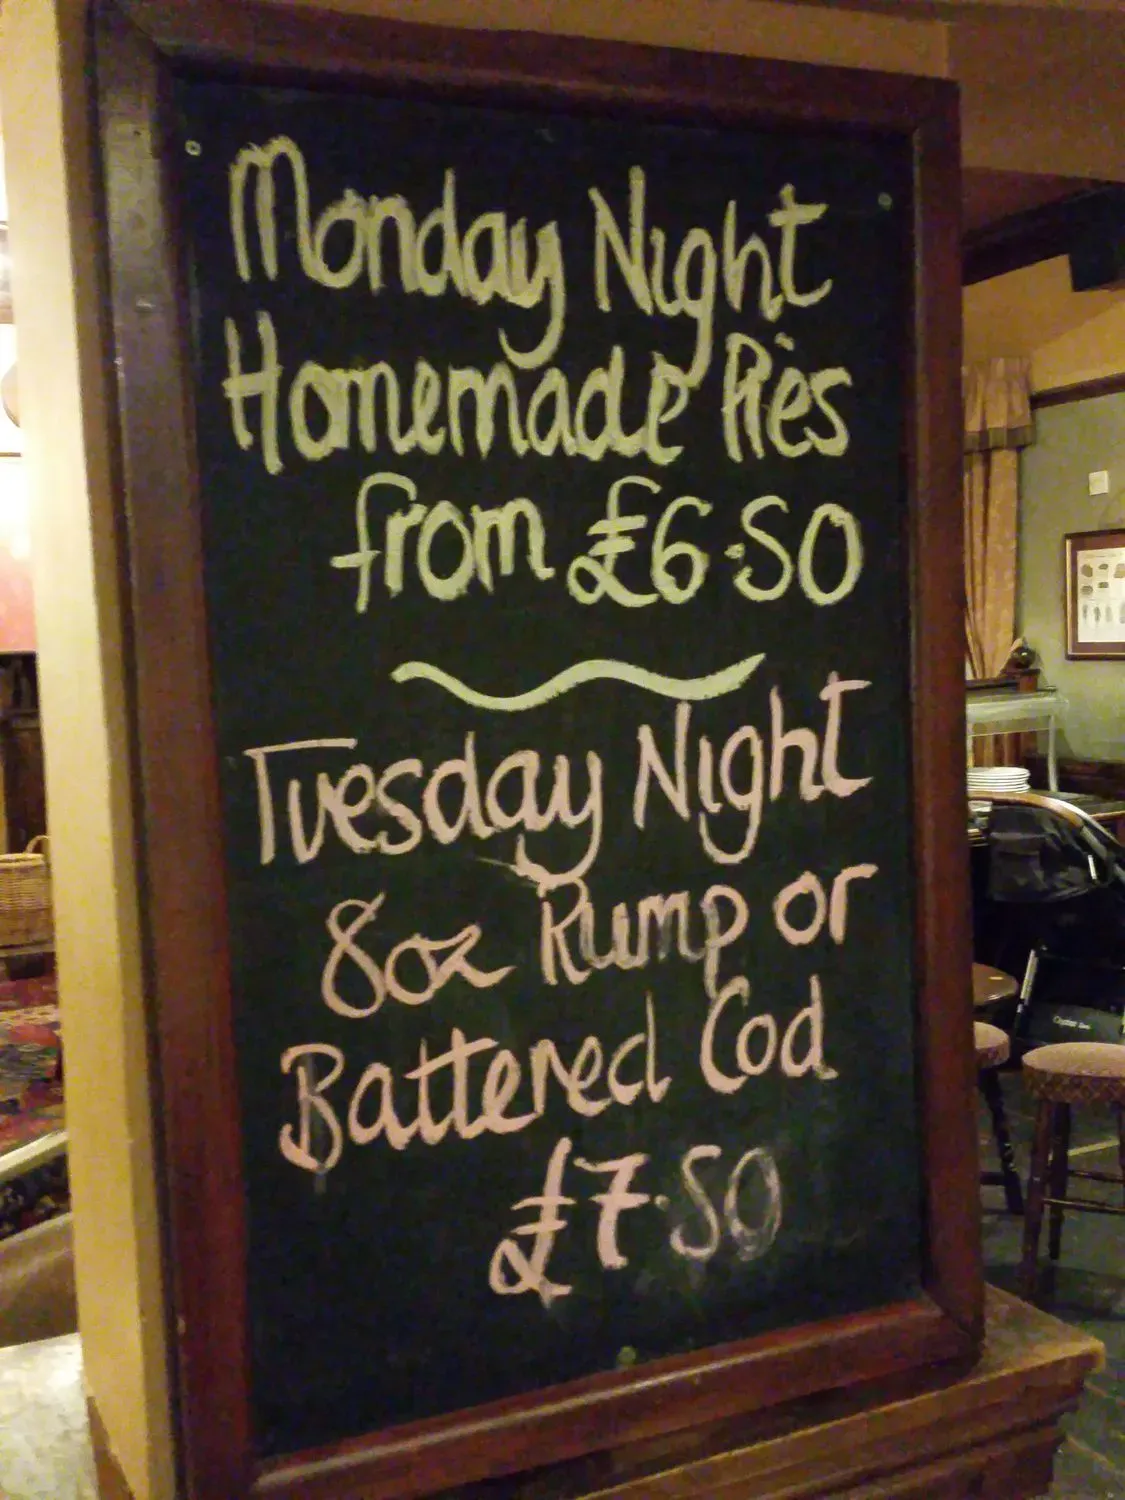 Monday Night
Homemade Pies
from £6.50
Tuesday Night
8oz Rump or
Battered Cod
£7.50